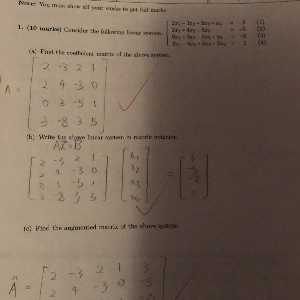 Note: You must show all your works to get full marks
1. (10 marks) Consider the following linear system:
2x₁ - 3x₂ + 2x₃ + x₄ = 3 (1)
2x₁ + 4x₂ - 3x₃ = -5 (2)
(3)
(4)
(a) Find the coefficient matrix of the above system.
A =
2 -3 2 1
2 4 -3 0
0 3 -5 1
3 -8 3 5
(b) Write the above linear system in matrix notation.
AX = B
2 -3 2 1 x₁ 3
2 4 -3 0 x₂ -5
0 3 -5 1 x₃ -2
3 -8 3 5 x₄ 1
=
(c) Find the augmented matrix of the above system.
Â =
2 -3 2 1 3
2 4 -3 0 -5